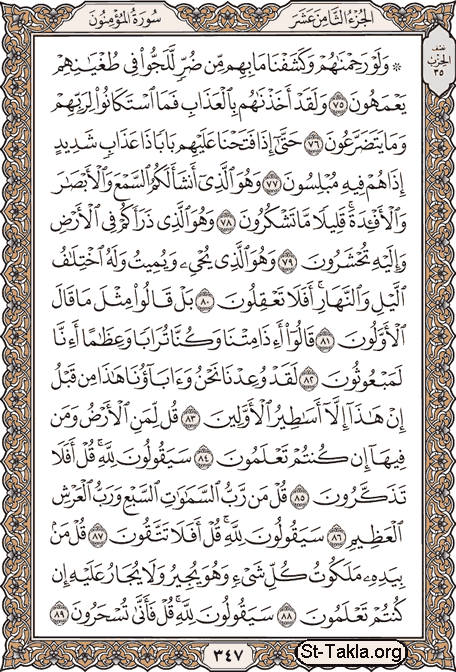 الجزء الثامن عشر
سورة المؤمنون
نصف
الحزب
٣٥
۞ وَلَوْ رَحِمْنَٰهُمْ وَكَشَفْنَا مَا بِهِم مِّن ضُرٍّ لَّلَجُّوا۟ فِى طُغْيَٰنِهِمْ
يَعْمَهُونَ ٧٥ وَلَقَدْ أَخَذْنَٰهُم بِٱلْعَذَابِ فَمَا ٱسْتَكَانُوا۟ لِرَبِّهِمْ
وَمَا يَتَضَرَّعُونَ ٧٦ حَتَّىٰٓ إِذَا فَتَحْنَا عَلَيْهِم بَابًا ذَا عَذَابٍ شَدِيدٍ
إِذَا هُمْ فِيهِ مُبْلِسُونَ ٧٧ وَهُوَ ٱلَّذِىٓ أَنشَأَ لَكُمُ ٱلسَّمْعَ وَٱلْأَبْصَٰرَ
وَٱلْأَفْـِٔدَةَ ۚ قَلِيلًا مَّا تَشْكُرُونَ ٧٨ وَهُوَ ٱلَّذِى ذَرَأَكُمْ فِى ٱلْأَرْضِ
وَإِلَيْهِ تُحْشَرُونَ ٧٩ وَهُوَ ٱلَّذِى يُحْىِۦ وَيُمِيتُ وَلَهُ ٱخْتِلَٰفُ
ٱلَّيْلِ وَٱلنَّهَارِ ۚ أَفَلَا تَعْقِلُونَ ٨٠ بَلْ قَالُوا۟ مِثْلَ مَا قَالَ
ٱلْأَوَّلُونَ ٨١ قَالُوٓا۟ أَءِذَا مِتْنَا وَكُنَّا تُرَابًا وَعِظَٰمًا أَءِنَّا
لَمَبْعُوثُونَ ٨٢ لَقَدْ وُعِدْنَا نَحْنُ وَءَابَآؤُنَا هَٰذَا مِن قَبْلُ
إِنْ هَٰذَآ إِلَّآ أَسَٰطِيرُ ٱلْأَوَّلِينَ ٨٣ قُل لِّمَنِ ٱلْأَرْضُ وَمَن
فِيهَآ إِن كُنتُمْ تَعْلَمُونَ ٨٤ سَيَقُولُونَ لِلَّهِ ۚ قُلْ أَفَلَا
تَذَكَّرُونَ ٨٥ قُلْ مَن رَّبُّ ٱلسَّمَٰوَٰتِ ٱلسَّبْعِ وَرَبُّ ٱلْعَرْشِ
ٱلْعَظِيمِ ٨٦ سَيَقُولُونَ لِلَّهِ ۚ قُلْ أَفَلَا تَتَّقُونَ ٨٧ قُلْ مَنۢ
بِيَدِهِۦ مَلَكُوتُ كُلِّ شَىْءٍ وَهُوَ يُجِيرُ وَلَا يُجَارُ عَلَيْهِ إِن
كُنتُمْ تَعْلَمُونَ ٨٨ سَيَقُولُونَ لِلَّهِ ۚ قُلْ فَأَنَّىٰ تُسْحَرُونَ ٨٩
٣٤٧
St-Takla.org